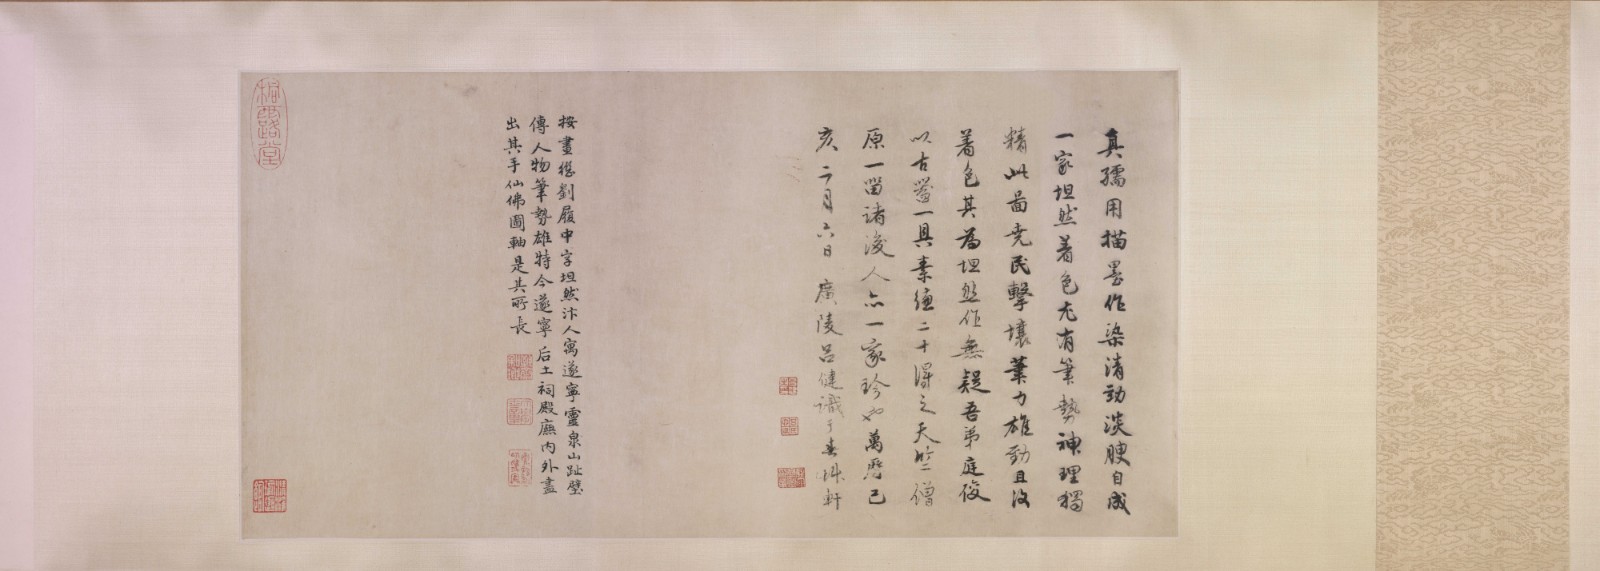 真孺用描墨作染清勁淡腴自成
一家坦然着色尤有筆勢神理獨
精此啚堯民擊壤筆力雄勁且沒
着色其為坦然作無疑吾弟庭俊
以古罍一具素縑二十得之天竺僧
原一留諸後人亦一家珍也萬曆己
亥二月六日 廣陵呂健識于 軒
按畫繼劉履中字坦然汴人寓遂寧靈泉山趾壁
傳人物筆勢雄特今遂寧后土祠殿廡内外盡
出其手仙佛圖軸是其所長